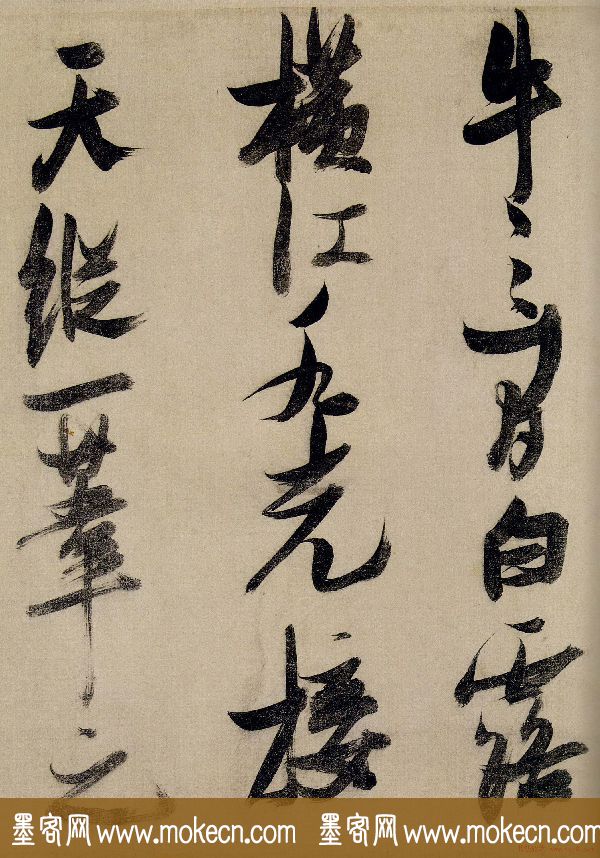 牛之間白露
橫江水光接
天縱一葦之
墨客网 www.mokecn.com 墨客网 www.mokecn.com